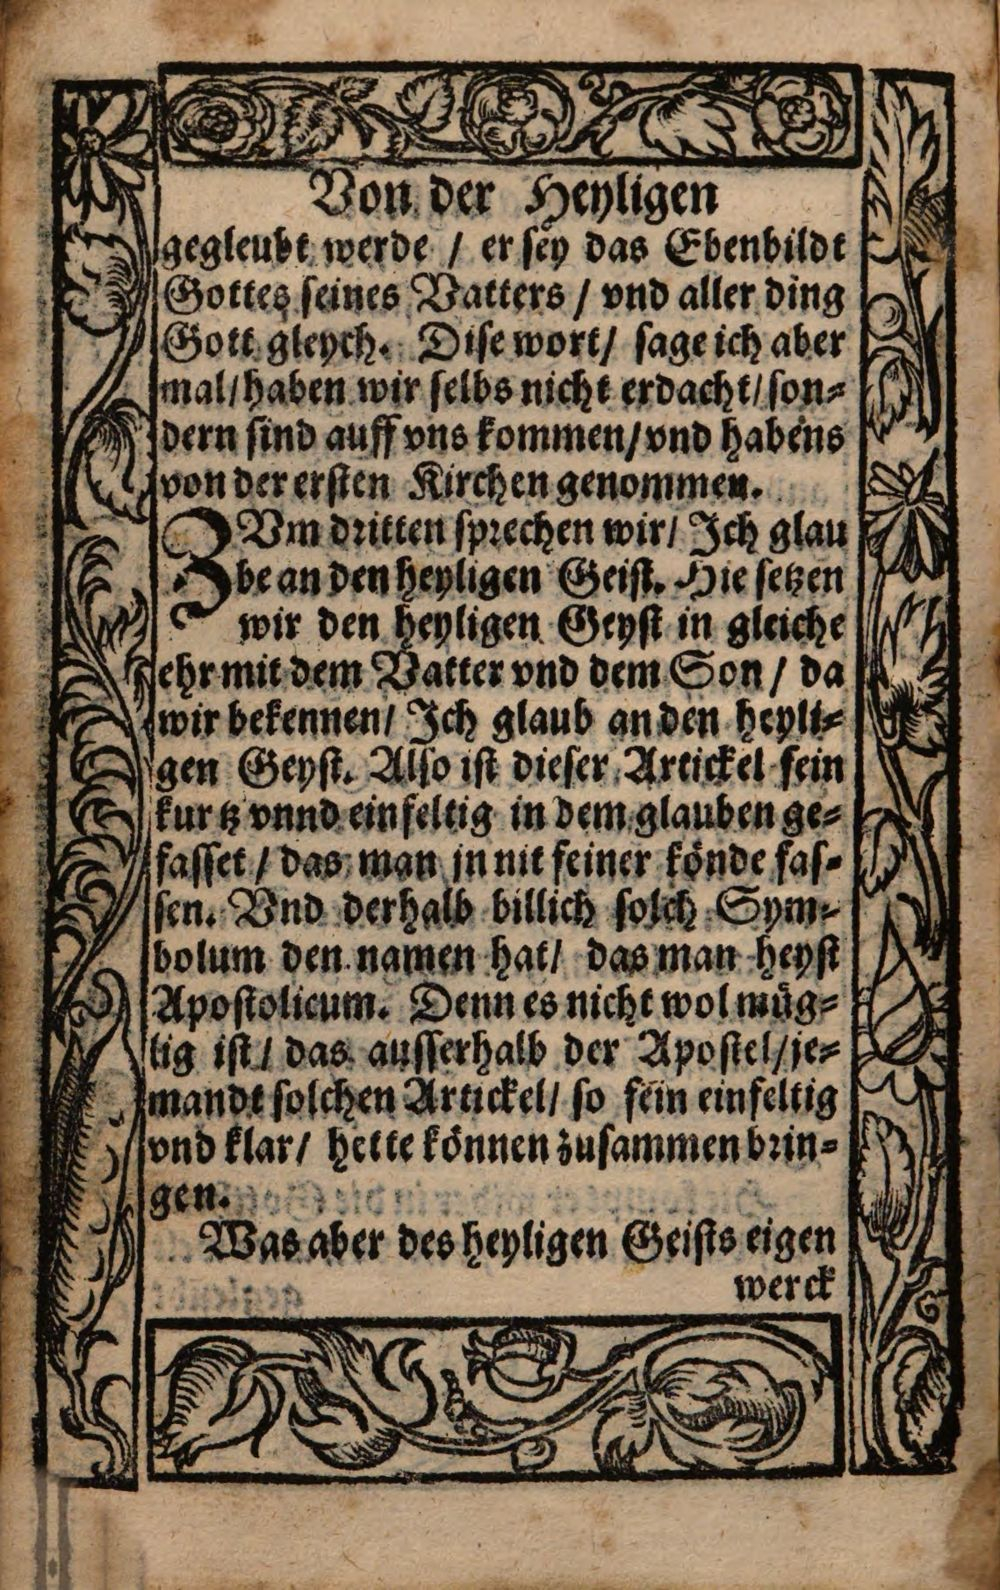 Von der Heyligen
gegleubt werde / er sey das Ebenbildt
Gottes seines Vatters / vnd aller ding
Gott gleych. Dise wort / sage ich aber
mal / haben wir selbs nicht erdacht / son⸗
dern sind auff vns kommen / vnd habens
von der ersten Kirchen genommen.
ZVm dritten sprechen wir / Ich glau
be an den heyligen Geist. Hie setzen
wir den heyligen Geyst in gleiche
ehr mit dem Vatter vnd dem Son / da
wir bekennen / Ich glaub an den heyli⸗
gen Geyst. Also ist dieser Artickel fein
kurtz vnnd einfeltig in dem glauben ge⸗
fasset / das man jn nit feiner könde fas⸗
sen. Vnd derhalb billich solch Sym⸗
bolum den namen hat / das man heyst
Apostolicum. Denn es nicht wol müg⸗
lig ist / das ausserhalb der Apostel / je⸗
mandt solchen Artickel / so fein einfeltig
vnd klar / hette können zusammen brin⸗
gen.
Was aber des heyligen Geists eigen
werck